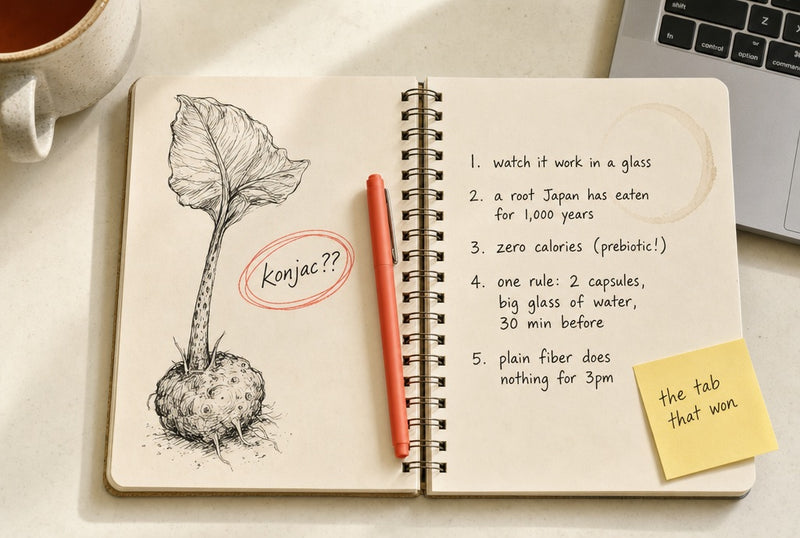 konjac??
1. watch it work in a glass
2. a root Japan has eaten
for 1,000 years
3. zero calories (prebiotic!)
4. one rule: 2 capsules,
big glass of water,
30 min before
5. plain fiber does
nothing for 3pm
the tab
that won
shift
Z
X
fn
control
option
command